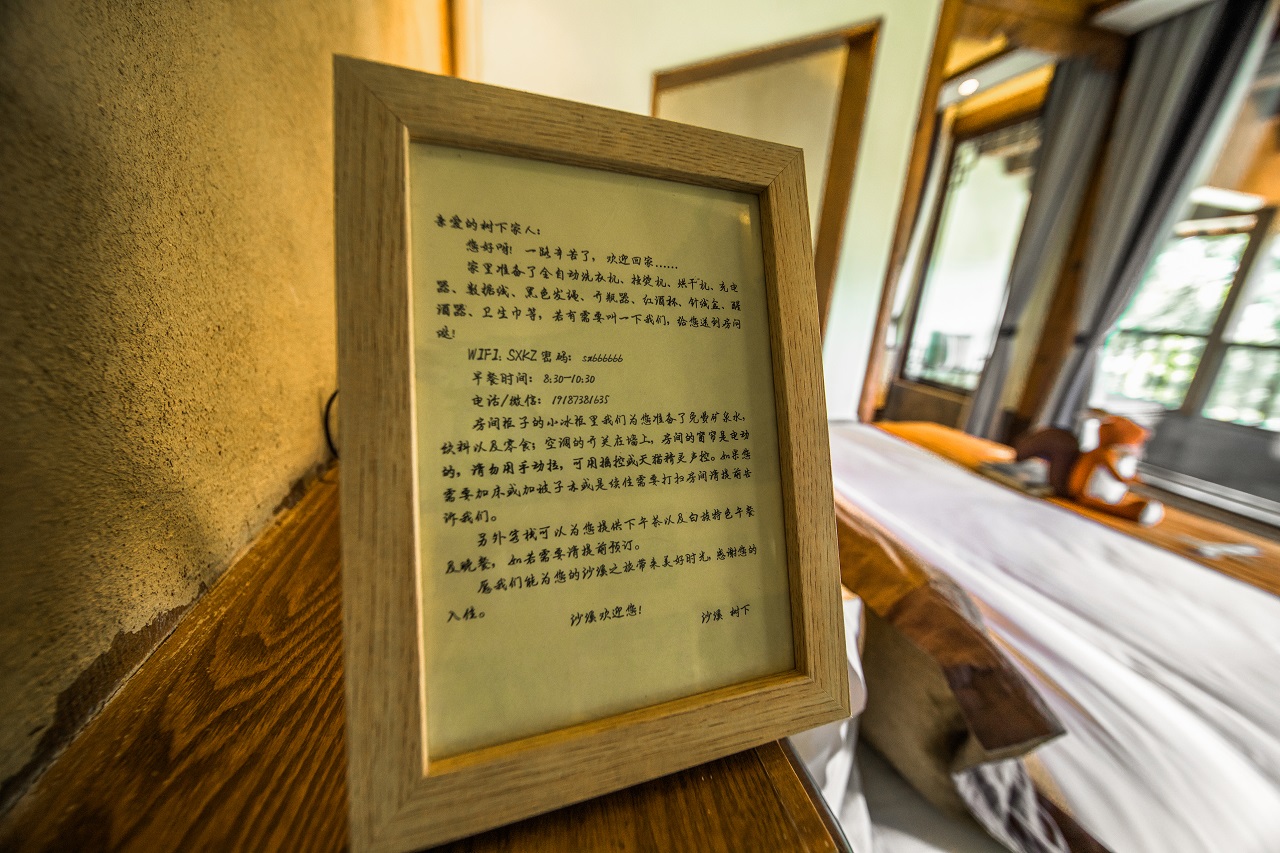 亲爱的树下家人：
您好呀！一路辛苦了，欢迎回家……
家里准备了全自动洗衣机、挂烫机、烘干机、充电
器、数据线、黑色发掩、开瓶器、红酒杯、针线盒、醒
酒器、卫生巾等，若有需要叫一下我们，给您送到房间
哒！
WIFI：SXKZ 密码：sx666666
早餐时间：8:30-10:30
电话/微信：19187381635
房间柜子的小冰柜里我们为您准备了免费矿泉水，
饮料以及零食；空调的开关在墙上，房间的窗帘是电动
的，请勿用手动拉，可用摇控或天猫精灵声控。如果您
需要加床或加被子亦或是续住需要打扫房间请提前告
诉我们。
另外客栈可以为您提供下午茶以及白族特色午餐
及晚餐，如若需要请提前预订。
愿我们能为您的沙溪之旅带来美好时光，感谢您的
入住。 沙溪欢迎您！ 沙溪 树下